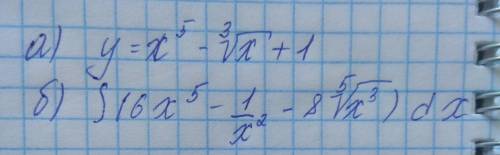 а) y = x⁵ - ∛x + 1
б) ∫(6x⁵ - 1/x² - 8⁵√x³) dx